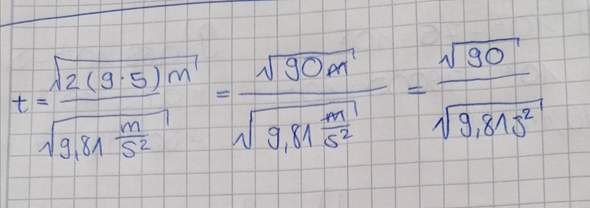 t = √(2(9·5)m) / √(9,81 m/s²) = √(90m) / √(9,81 m/s²) = √90 / √(9,81s²)